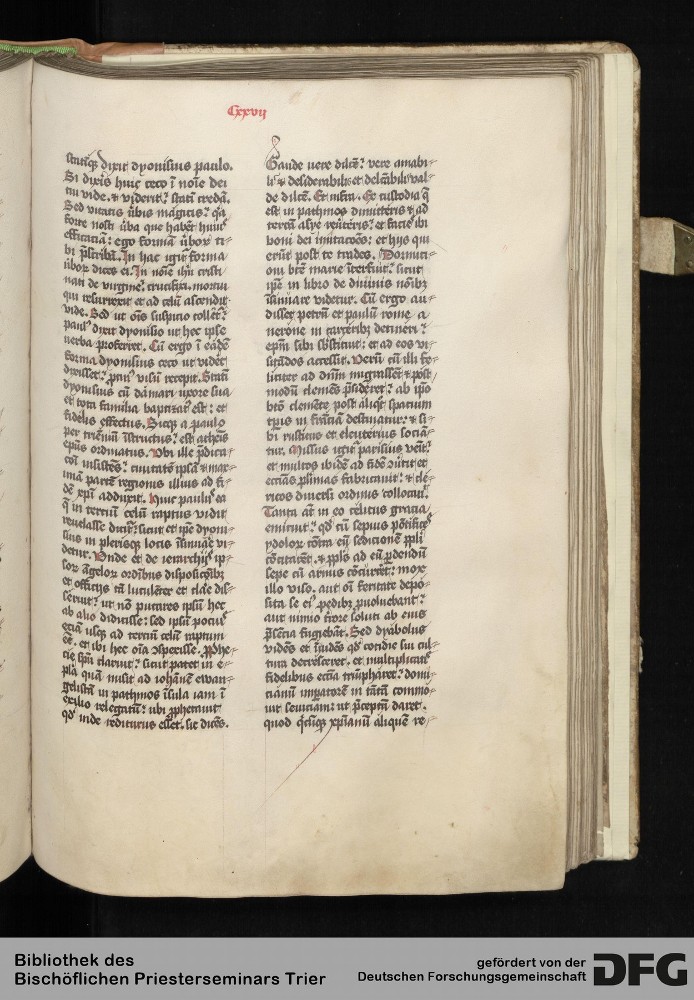 Cxxvij
statiq̄ʒ dixit dyonisius paulo.
Si dixis huic ceco ī noīe dei
tui vide. ⁊ viderit᷑ statī credā.
Sed vtaris v̄bis magicis᷑
forte nosti v̄ba que habēt huiꝰ
efficaciā: ego formā v̄boꝝ ti-
bi p̄scribā. In hac igit᷑ forma
v̄boꝝ dices ei. In noīe ihū cristi
nati de virgine᷑ crucifixi. mortui
qui resurrexit et ad celū ascendit
vide. Sed ut oīs suspicio tolleret᷑
paulꝰ dixit dyonisio ut hec ipse
verba proferret. Cū ergo ī eādē
forma dyonisius ceco ut videret
dixisset᷑ ꝓtinꝰ visū recepit. Statī
dyonisius cū dāmari uxore sua
et tota familia baptizatꝰ est: et
fidelis effectus. Sicqʒ a paulo
per trieniū īstructus᷑ est athenis
ep̄us ordinatus. Vbi ille p̄dica-
cōī insistēs᷑ ciuitatē ipsā ⁊ max-
imā partē regionis illius ad fi-
dē xp̄i adduxit. Huic paulꝰ ea
q̄ in terciū celū raptus vidit
reuelasse dicit᷑ sicut et ip̄e dyoni-
sius in plerisqʒ locis īsinuāe vi-
detur. Vnde et de ierarchijs ip-
soꝝ āgeloꝝ ordībus dispositōībʒ
et officijs tā luculēter et clāe dis-
seruit᷑ ut nō putares ipsū hec
ab alio didicisse: sed ipsū pociꝰ
eciā usqʒ ad terciū celū raptum
eē. et ibi hec oīa ꝯspexisse. ꝓphe-
cie sp̄u claruit᷑ sicut patet in e-
pla quā misit ad iohānē ewan-
gelistā in pathmos īsula iam ī
exilio relegatū᷑ ubi ꝓphetauit
qd̄ inde rediturus esset. sic dicēs.
Gaude uere dilcē᷑ vere amabi-
lis ⁊ desiderabilis et delcābilis val-
de dilcē. Et infra. Ex custodia q̄
est in pathmos dimitteris ⁊ ad
terrā asye reūteris᷑ et facies ibi
boni dei imitacōes: et hijs qui
erūt post te trades. Dormici-
oni btē marie īterfuit᷑ sicut
ip̄e in libro de diuinis noībʒ
īsinuare videtur. Cū ergo au-
disset petrū et paulū rome a
nerone in carcerībʒ detineri᷑
ep̄m sibi sb̄stituit: et ad eos vi-
sitādos accessit. Verū cū illi fe-
liciter ad dn̄m migrassēt ⁊ post-
modū clemēs p̄sideret᷑ ab ip̄o
btō clemēte post aliq̄t spacium
tp̄is in frāciā destinatur: ⁊ si-
bi rusticus et eleuterius sociā-
tur. Missus igit᷑ parisius venit᷑
et multos ibidē ad fidē ꝯūtit et
ecc̄ias plimas fabricauit᷑ ⁊ cle-
ricos diuersi ordinis collocauit.
Tanta āt in eo celitus gracia
emicuit᷑ qd̄ cū sepius pōtifices
ydoloꝝ cōtra eū sedicionē ppl̄i
cōcitarēt. ⁊ ppl̄s ad eū ꝑdendū
sepe cū armis cōcurrēt᷑ mox
illo viso. aut oī feritate depo-
sita se eiꝰ pedibʒ ꝓuoluebant᷑
aut nimio timore soluti ab eius
p̄sencia fugiebāt. Sed dyabolus
vidēs et īuidēs qd̄ cotidie sui cul-
tura decresceret. et multiplicatis
fidelibus ecc̄ia triūpharet᷑ domi-
cianū imꝑatorē in tātā commo-
uit seuiciam᷑ ut p̄ceptū daret.
quod q̄cūqʒ xp̄ianū aliquē re-
Bibliothek des
Bischöflichen Priesterseminars Trier
gefördert von der
Deutschen Forschungsgemeinschaft
DFG